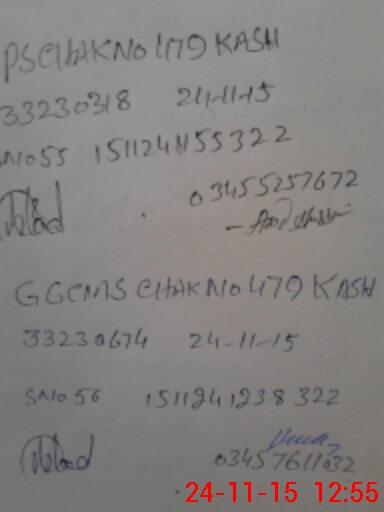 PSCHAKNO 479 KASH
33230318 24-11-15
SNO55 1511241155322
03455257672
GGCMS CHAKNO 479 KASH
33230674 24-11-15
SNO 56 1511241238322
03457611032
24-11-15 12:55